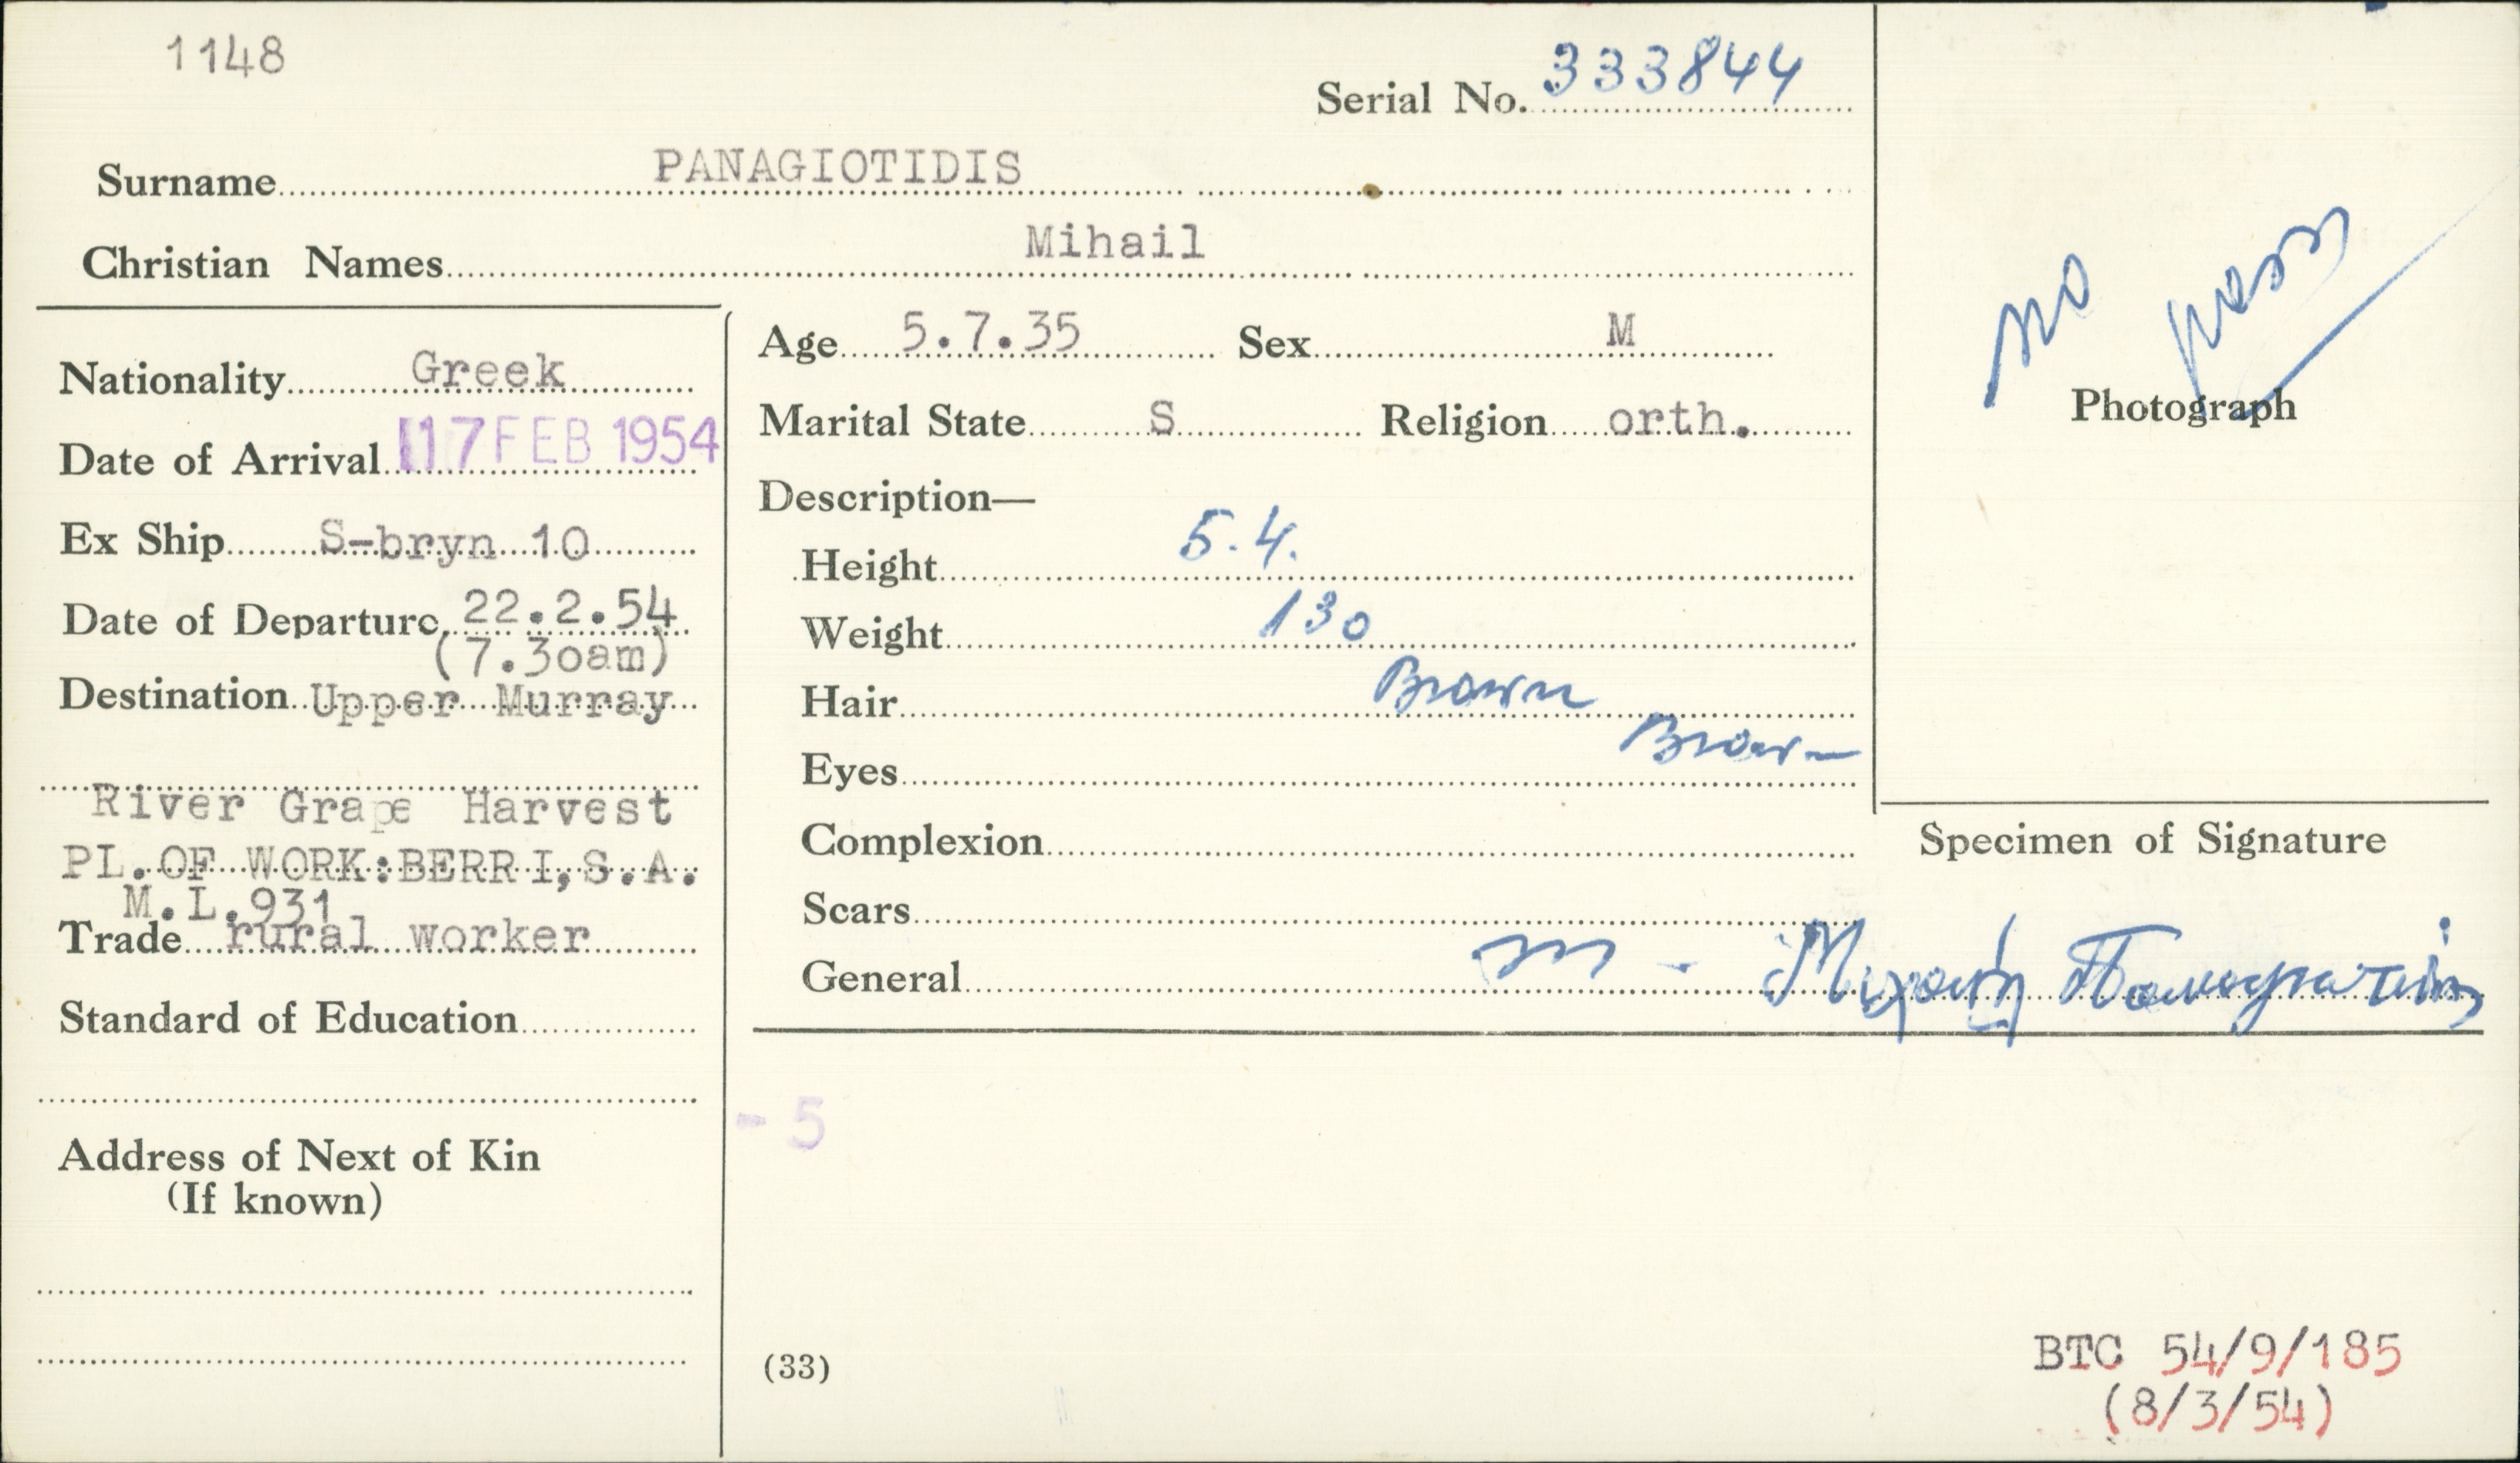 1148
Serial No. 333844
Surname PANAGIOTIDIS
Christian Names Mihail
Nationality Greek
Date of Arrival 17 FEB 1954
Ex Ship S-bryn 10
Date of Departure 22.2.54
(7.3oam)
Destination Upper Murray
River Grape Harvest
PL.OF WORK:BERRI,S.A.
M.L.931
Trade rural worker
Standard of Education
Address of Next of Kin
(If known)
Age 5.7.35 Sex M
Marital State S Religion orth.
Description—
Height 5.4.
Weight 130
Hair Brown
Eyes Brown
Complexion
Scars
General
- 5
(33)
no
Photograph
Specimen of Signature
BTC 54/9/185
(8/3/54)